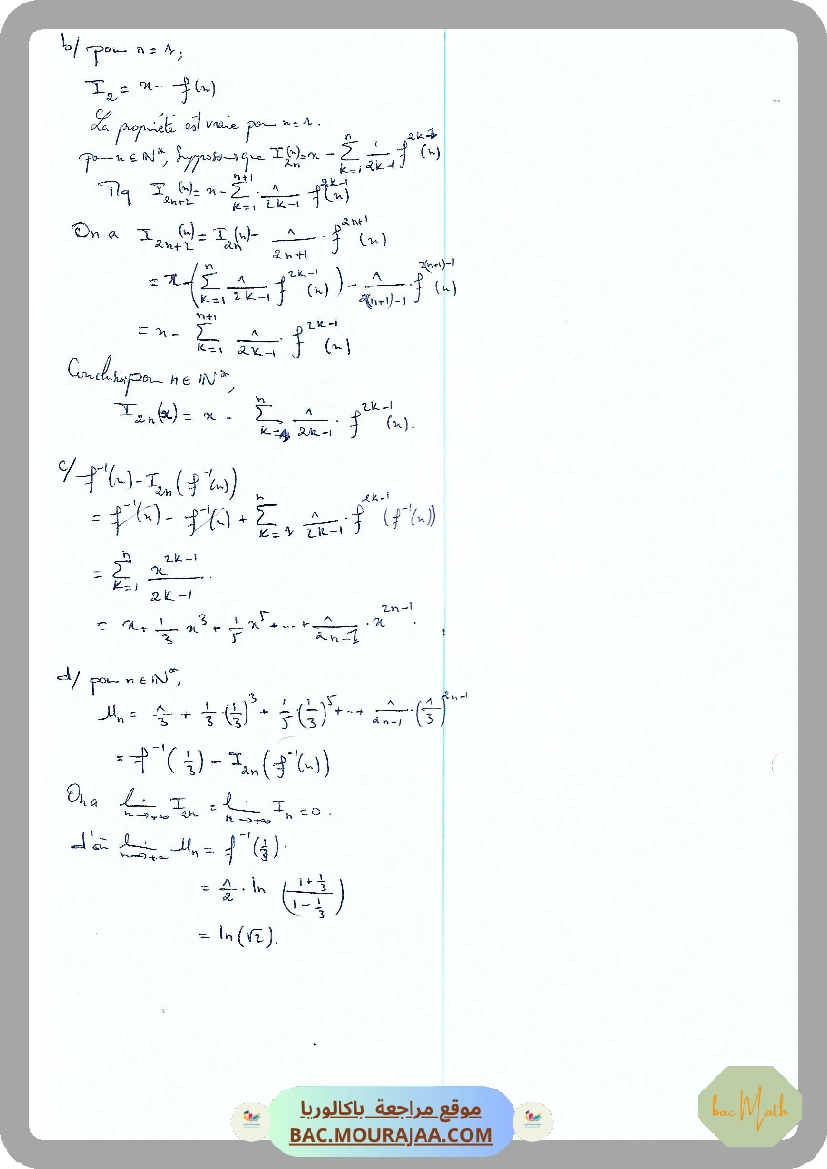 b/ pour n = 1,
I₂ = x - f(x)
La propriété est vraie pour n = 1.
pour n ∈ ℕ*, Supposons que I₂ₙ(x) = x - Σ_{k=1}^{n} 1/(2k-1) f^{2k-1}(x)
Mq I₂ₙ₊₂(x) = x - Σ_{k=1}^{n+1} 1/(2k-1) f^{2k-1}(x)
On a I₂ₙ₊₂(x) = I₂ₙ(x) - 1/(2n+1) · f^{2n+1}(x)
= x - (Σ_{k=1}^{n} 1/(2k-1) f^{2k-1}(x)) - 1/(2(n+1)-1) · f^{2(n+1)-1}(x)
= x - Σ_{k=1}^{n+1} 1/(2k-1) · f^{2k-1}(x)
Conclusion pour n ∈ ℕ*,
I₂ₙ(x) = x - Σ_{k=1}^{n} 1/(2k-1) · f^{2k-1}(x).
c/ f⁻¹(x) - I₂ₙ(f⁻¹(x))
= f⁻¹(x) - f⁻¹(x) + Σ_{k=1}^{n} 1/(2k-1) · f^{2k-1}(f⁻¹(x))
= Σ_{k=1}^{n} x^{2k-1}/(2k-1).
= x + 1/3 x³ + 1/5 x⁵ + ... + 1/(2n-1) · x^{2n-1}.
d/ pour n ∈ ℕ*,
Uₙ = 1/3 + 1/3 · (1/3)³ + 1/5 · (1/3)⁵ + ... + 1/(2n-1) · (1/3)^{2n-1}
= f⁻¹(1/3) - I₂ₙ(f⁻¹(x))
On a lim_{n→+∞} I₂ₙ = lim_{n→+∞} Iₙ = 0.
d'où lim_{n→+∞} Uₙ = f⁻¹(1/3).
= 1/2 · ln ((1+1/3)/(1-1/3))
= ln(√2).
موقع مراجعة باكالوريا
BAC.MOURAJAA.COM
bac Math